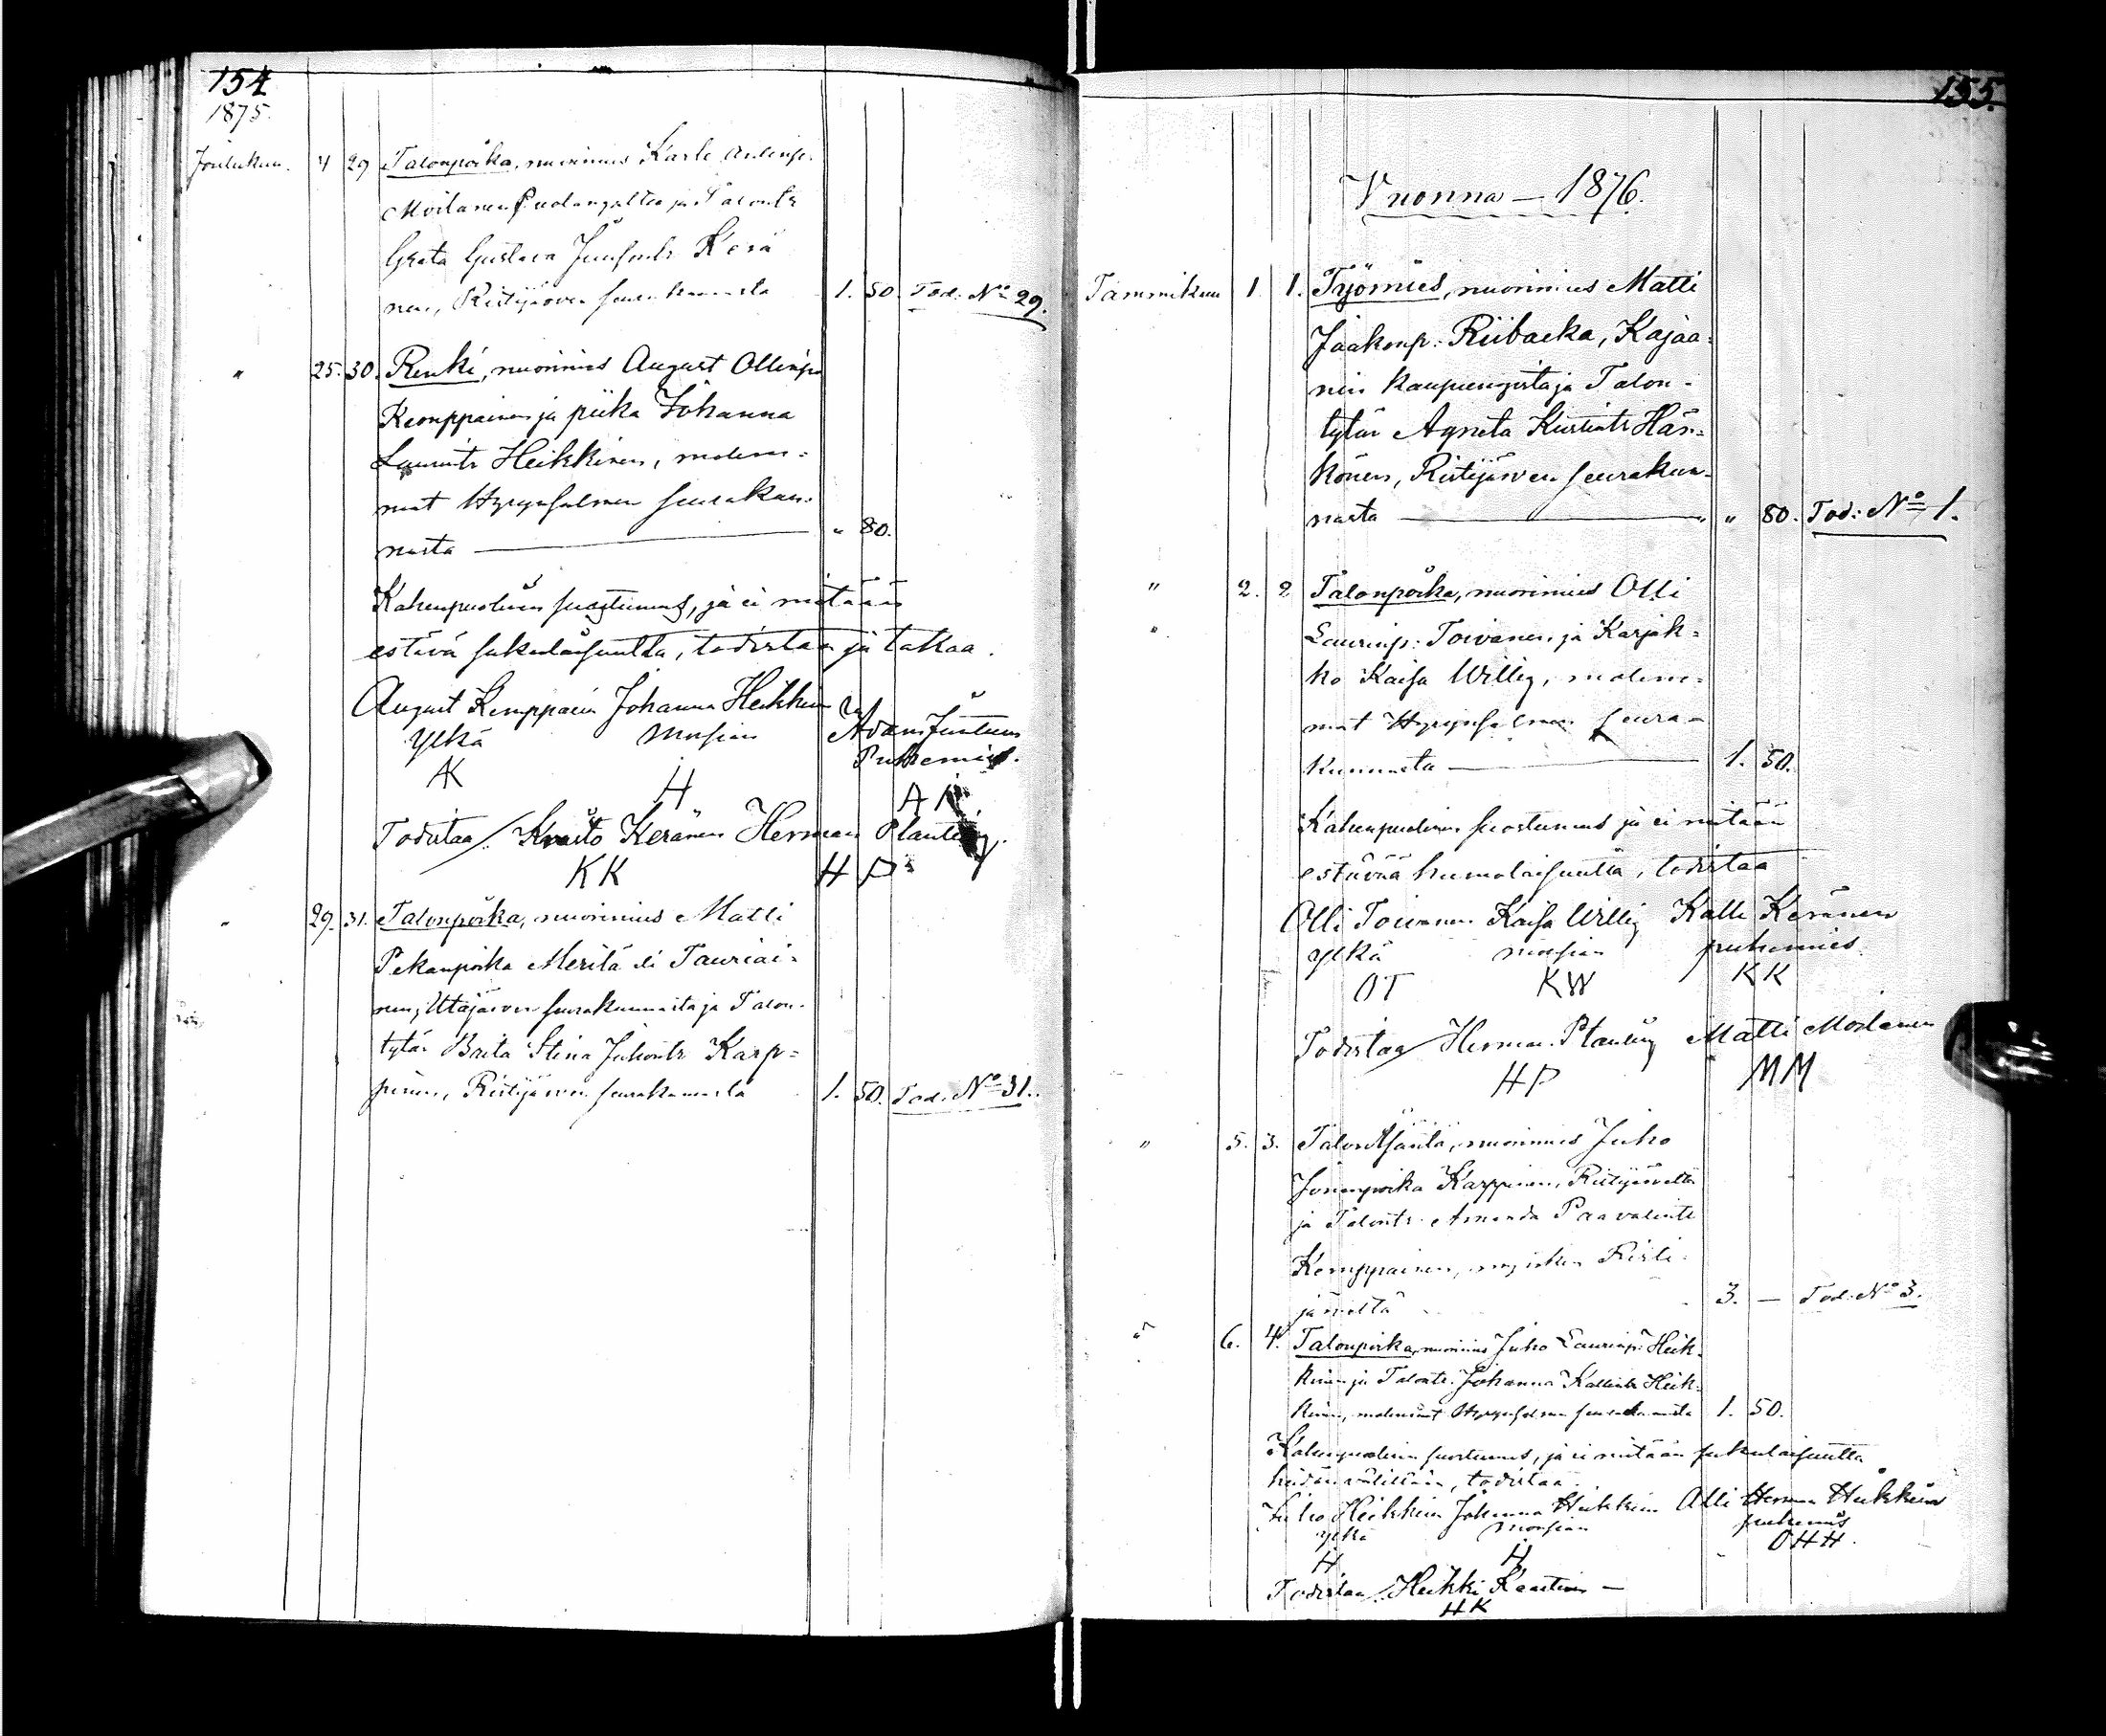 154
1875.
Joulukuu. 4 29 Talonpoika, nuorimies Karle Antinp.
Moilanen Puolangalta ja Talontr
Greta Gustava Juhontr Kerä
nen, Ristijärven seurakunnasta 1. 50. Tod: No 29.
" 25. 30. Renki, nuorimies August Ollinpo
Kemppainen ja piika Johanna
Laurintr Heikkinen, molem-
mat Hyrynsalmen seurakun-
nasta — " 80.
Kahenpuolinen suostumus, ja ei mitään
estävä sukulaisuutta, todistaa ja takaa.
August Kemppain Johanna Heikkinen Adam Juntunen
Ylkä morsian Puhemies.
AK H A
Todistaa: Keränen Herman Planting.
KK HP
" 29. 31. Talonpoika, nuorimies Matti
Pekanpoika Merilä eli Tauriai-
nen, Utajärven seurakunnasta ja Talon-
tytär Brita Stina Juhontr Karp-
pinen, Ristijärven seurakunnasta 1. 50. Tod: No 31.
155.
Vuonna — 1876.
Tammikuu 1. 1. Työmies, nuorimies Matti
Jaakonp: Riibacka, Kajaa-
nin kaupungista ja Talon-
tytär Agneta Hän-
könen, Ristijärven seurakun-
nasta — " 80. Tod: No 1.
" 2. 2 Talonpoika, nuorimies Olli
" Laurinp: Toivanen, ja Karjak-
ko Kaisa Willig, molem-
mat Hyrynsalmen seura-
kunnasta — 1. 50.
Kahenpuolinen suostumus ja ei mitään
estävää huomolaisuutta, todistaa
Olli Toivanen Kaisa Willig Kalle Keränen
ylkä morsian puhemies
OT KW KK
Todistaa Herman Planting Matti Moilanen
HP MM
" 5. 3. Talon nuorimies Juho
Karppinen, Ristijäveltä
ja Talontr. Amanda Paavalintr
Kemppainen, Risti-
järveltä 3. — Tod: No 3.
" 6. 4. Talonpoika, nuorimies Juho Laurinp: Heik-
kinen ja Talontr. Johanna Kallentr Heik-
kinen, molemmat Hyrynsalmen seurakunnasta 1. 50.
Kahenpuolinen suostumus, ja ei mitään sukulaisuutta
heidän välillään, todistaa
Juho Heikkinen Johanna Heikkinen Olli Herman Heikkinen
ylkä morsian puhemies
H H OHH.
Todistaa: Heikki Kaartinen —
HK